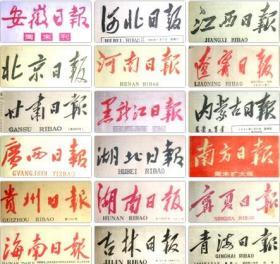 安徽日报
周末刊
河北日報
HEBEI RIBAO
江西日報
JIANGXI RIBAO
北京日报
河南日報
HENAN RIBAO
遼寧日報
LIAONING RIBAO
甘肅日報
GANSU RIBAO
黑龙江日报
内蒙古日报
廣西日報
GVANGJSIH YIZBAO
湖北日報
HUBEI RIBAO
南方日報
周末扩大版
貴州日報
GUIZHOU RIBAO
湖南日報
HUNAN RIBAO
寧夏日報
NINGXIA RIBAO
海南日報
吉林日報
JILIN RIBAO
青海日報
QINGHAI RIBAO